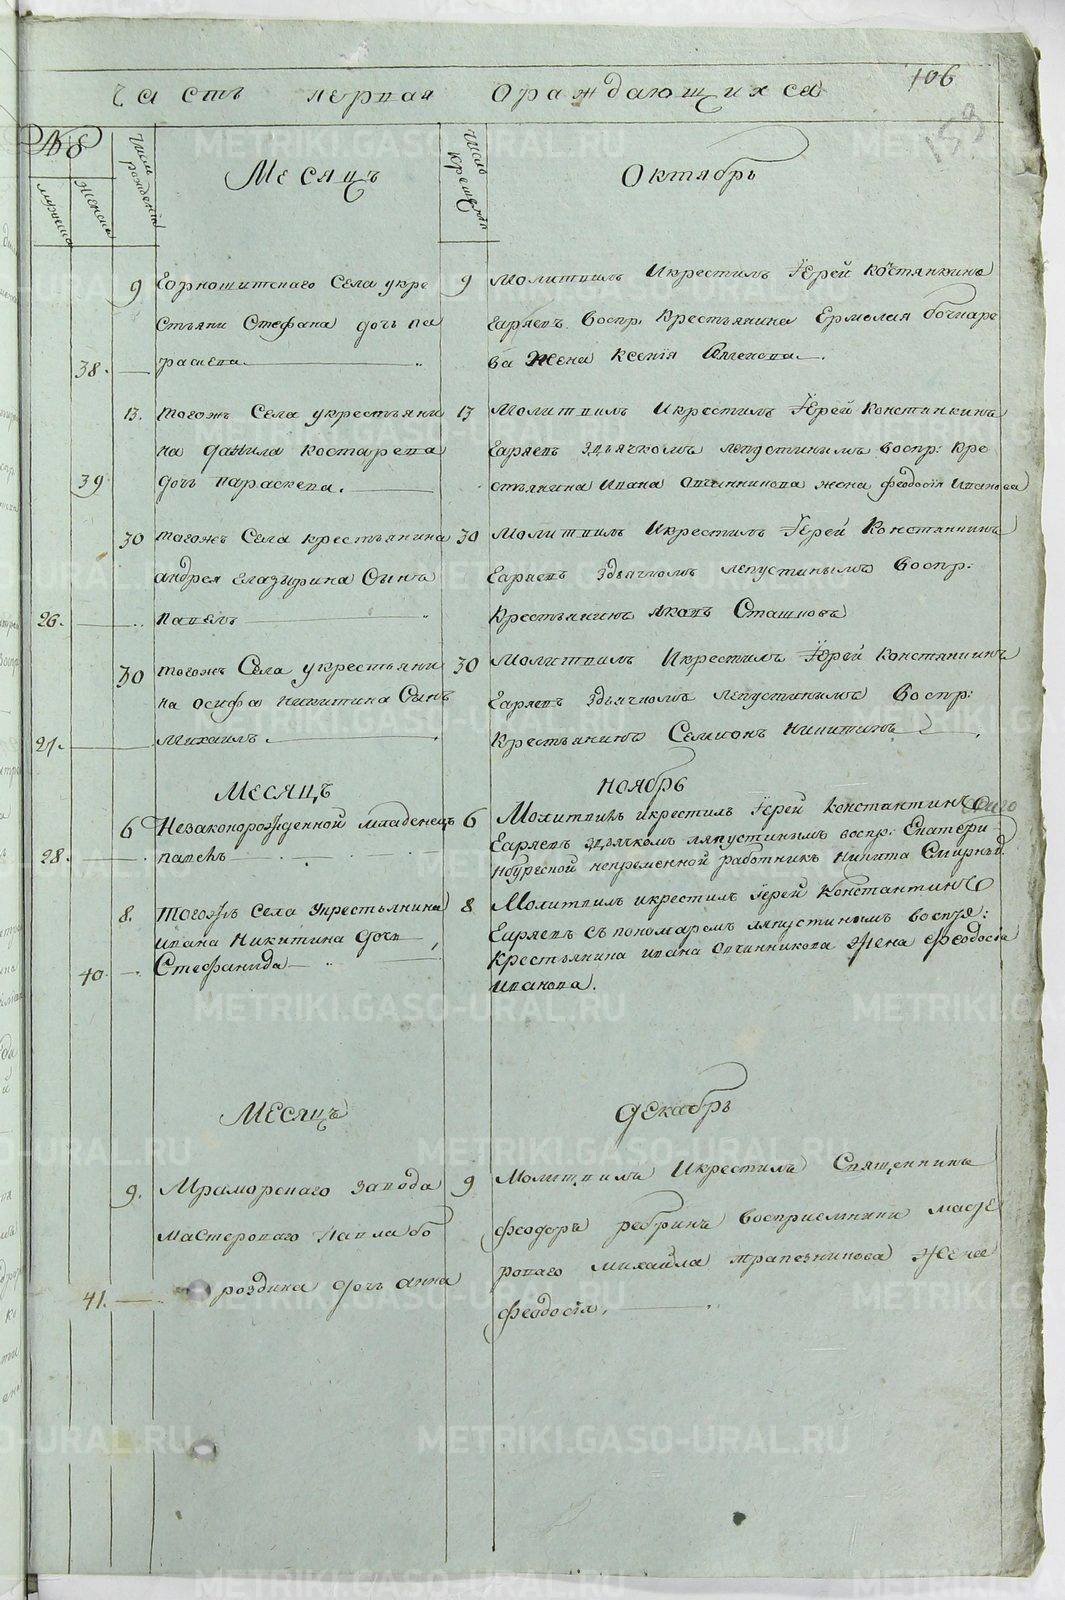 Часть первая ораждающихся
106
153
№
мужеска
женска
Число рождения
Месяцъ
Число крещения
Октябрь
38. 9 Горнощитскаго Села укре
стьяни Стефана дочь па
раскева
9 Молитвилъ Икрестилъ Іерей Костянкинъ
Гаряевъ воспр. крестьянина Ермолая бочкаре
ва жена Ксенія
39 13. тогожъ Села укрестьяни
на данила костарева
дочь параскева.
13 Молитвилъ Икрестилъ Іерей Константинъ
Гаряевъ здьячкомъ лепустинымъ воспр: кре
стьянина Ивана Овчинникова жена феодосія Иванова
26. 30 тогожъ Села крестьянина
андрея глазырина Сынъ
павелъ
30 Молитвилъ Икрестилъ Іерей Константинъ
Гаряевъ здьячкомъ лепустинымъ воспр:
крестьянинъ яковъ Сташковъ
27. 30 тогожъ Села укрестьяни
на осифа никитина Сынъ
михаилъ
30 Молитвилъ Икрестилъ Іерей Константинъ
Гаряевъ здьячкомъ лепустинымъ воспр:
крестьянинъ Семионъ никитинъ
Месяцъ ноябрь
28. 6 Незаконорожденной младенецъ
павелъ
6 Молитвилъ икрестилъ Іерей Константинъ
Гаряевъ здьячкомъ ляпустинымъ воспр: Екатери
нбургской непременной работникъ никита Смирны
40 8. Тогожъ Села укрестьянина
ивана Никитина дочь
Стефанида
8 Молитвилъ икрестилъ Іерей Константинъ
Гаряевъ съ пономаремъ ляпустинымъ воспря:
крестьянина ивана Овчинникова жена феодосіа
иванова.
Месяцъ декабрь
41. 9. Мраморскаго завода
мастероваго павла бо
роздина дочь анна
9 Молитвилъ Икрестилъ Священникъ
феодоръ ребринъ восприемники масте
роваго михайла трапезникова жена
феодосія.
METRIKI.GASO-URAL.RU